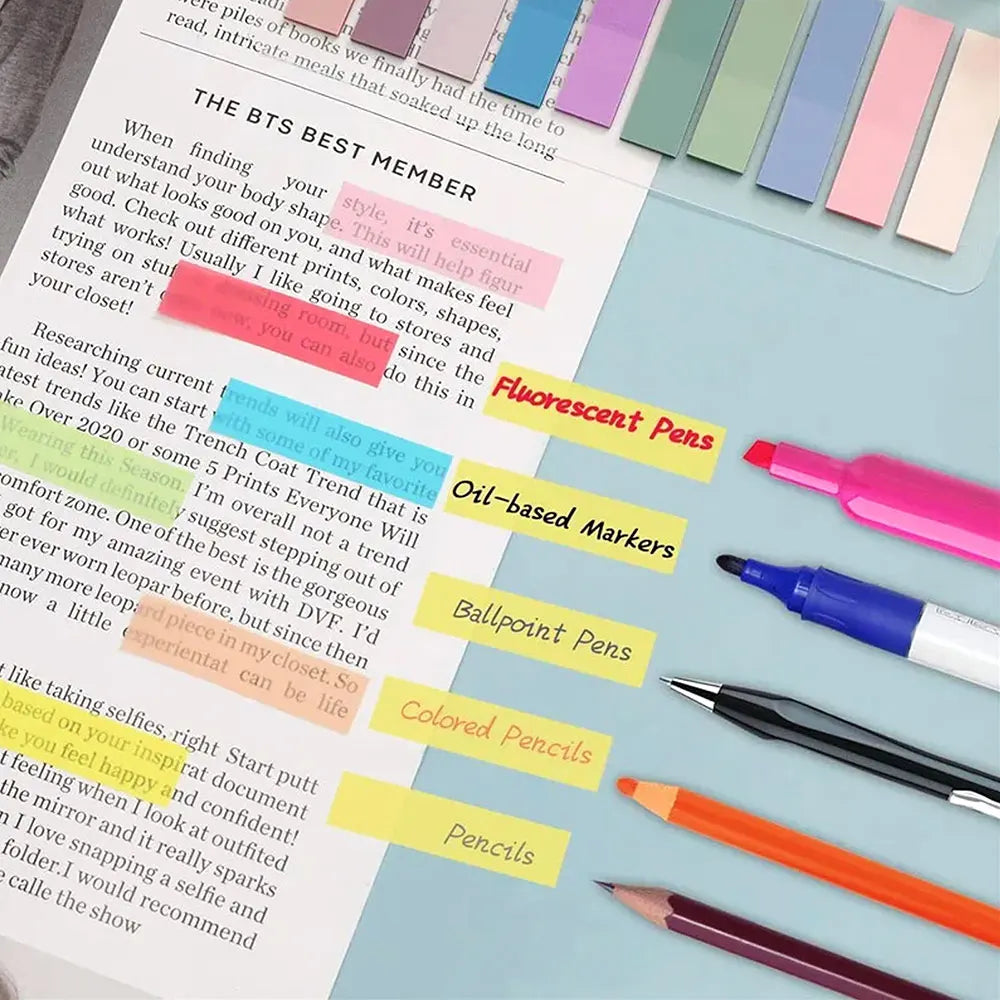 were piles of books we finally had the time to
read, intricate meals that soaked up the long
THE BTS BEST MEMBER
When finding your style, it's essential
understand your body shape. This will help figur
out what looks good on you, and what makes feel
good. Check out different prints, colors, shapes,
what works! Usually I like going to stores and
trying on stuf room, but since the
stores aren't new, you can also do this in
your closet!
Researching current trends will also give you
fun ideas! You can start with some of my favorite
atest trends like the Trench Coat Trend that is
ke Over 2020 or some 5 Prints Everyone Will
Wearing this Season. I'm overall not a trend
er, I would definitely suggest stepping out of
omfort zone. One of the best is the gorgeous
got for my amazing event with DVF. I'd
er ever worn leopar before, but since then
many more leopard piece in my closet. So
now a little experientat can be life
t like taking selfies, right Start putt
based on your inspirat document
ke you feel happy and confident!
t feeling when I look at outfited
the mirror and it really sparks
n I love snapping a selfie and
folder.I would recommend
e calle the show
Fluorescent Pens
Oil-based Markers
Ballpoint Pens
Colored Pencils
Pencils